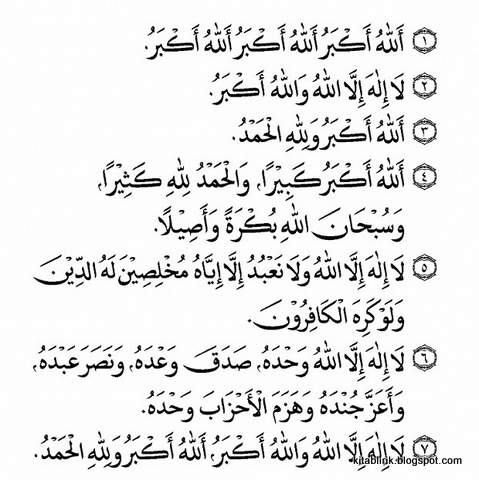 ١ اَللهُ أَكْبَرُ اَللهُ أَكْبَرُ اَللهُ أَكْبَرُ.
٢ لَا إِلٰهَ إِلَّا اللهُ وَاللهُ أَكْبَرُ.
٣ اَللهُ أَكْبَرُ وَلِلهِ الْحَمْدُ.
٤ اَللهُ أَكْبَرُ كَبِيْرًا، وَالْحَمْدُ لِلهِ كَثِيْرًا،
وَسُبْحَانَ اللهِ بُكْرَةً وَأَصِيْلًا.
٥ لَا إِلٰهَ إِلَّا اللهُ وَلَا نَعْبُدُ إِلَّا إِيَّاهُ مُخْلِصِيْنَ لَهُ الدِّيْنَ
وَلَوْ كَرِهَ الْكَافِرُوْنَ.
٦ لَا إِلٰهَ إِلَّا اللهُ وَحْدَهُ، صَدَقَ وَعْدَهُ، وَنَصَرَ عَبْدَهُ،
وَأَعَزَّ جُنْدَهُ وَهَزَمَ الْأَحْزَابَ وَحْدَهُ.
٧ لَا إِلٰهَ إِلَّا اللهُ وَاللهُ أَكْبَرُ، اَللهُ أَكْبَرُ وَلِلهِ الْحَمْدُ.
kitablink.blogspot.com